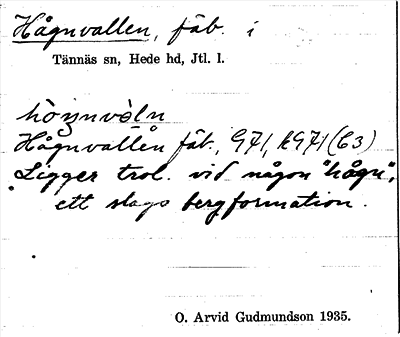 Hågnvallen, fäb. i
Tännäs sn, Hede hd, Jtl. l.
hö̀ŋnvə̀ln
Hågnvallen fäb., G71, kG71 (C3)
Ligger trol. vid någon "hågn",
ett slags bergformation.
O. Arvid Gudmundson 1935.